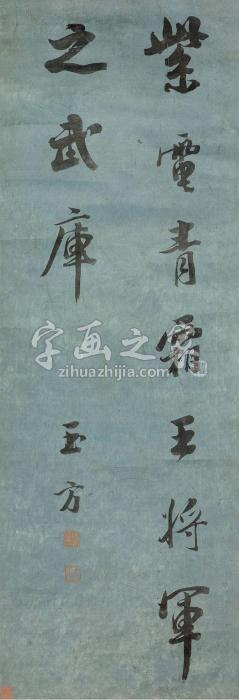 紫電青霜王將軍
之武庫
玉方
字画之家
zihuazhijia.com